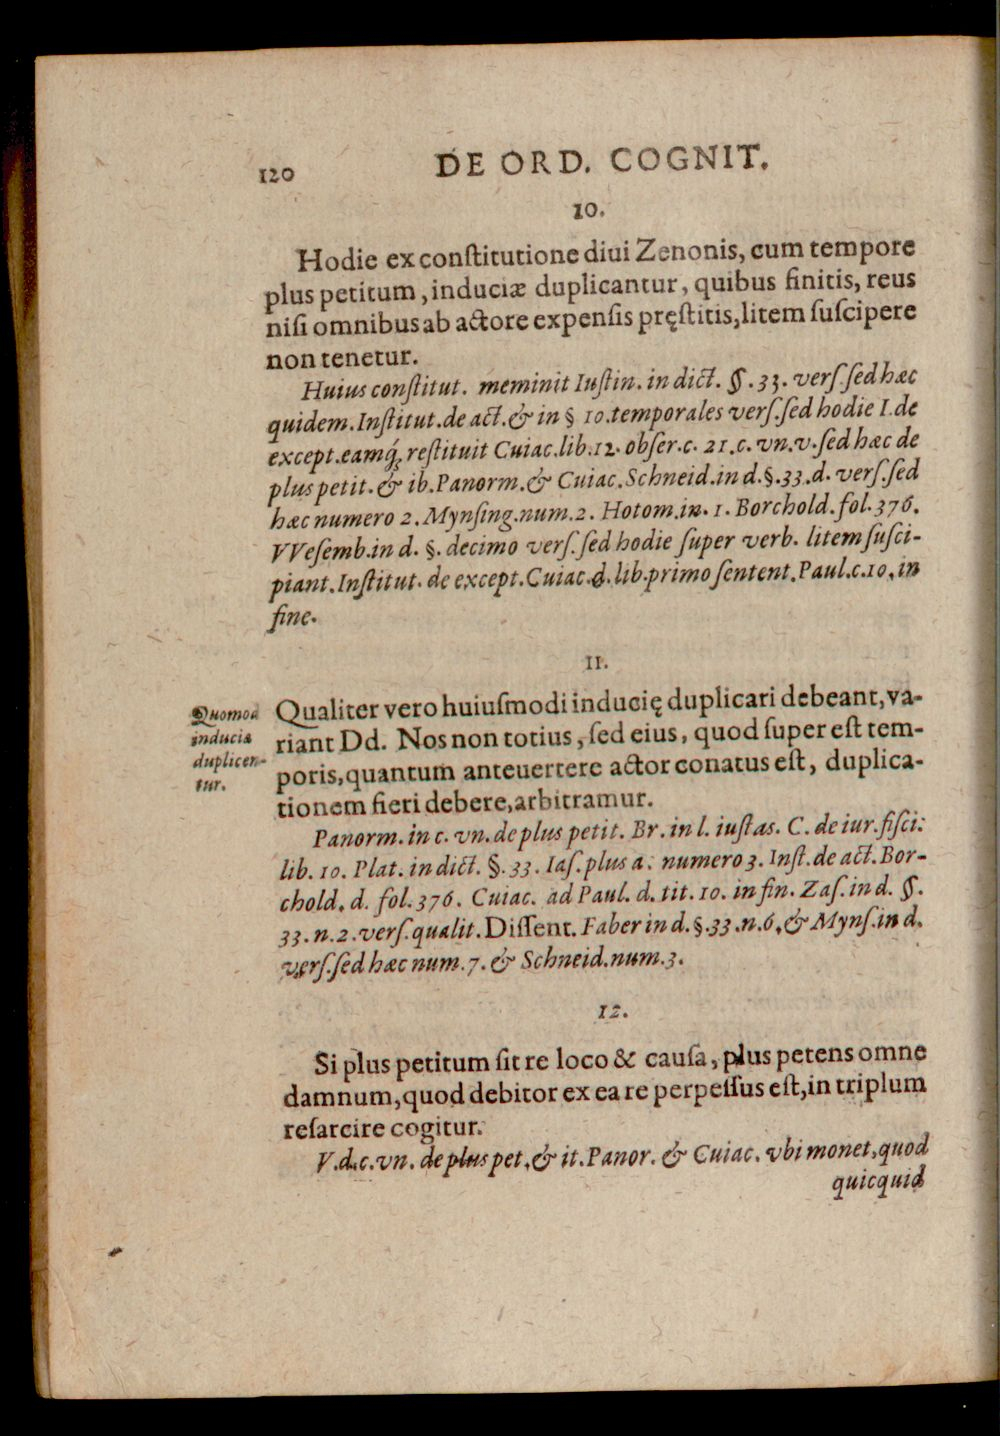 120 DE ORD. COGNIT.
10.
Hodie ex conſtitutione diui Zenonis, cum tempore
plus petitum, induciæ duplicantur, quibus finitis, reus
niſi omnibus ab actore expenſis pręſtitis, litem ſuſcipere
non tenetur.
Huius conſtitut. meminit Iuſtin. in dict. §. 33. verſ. ſed hæc
quidem. Inſtitut. de act. & in § 10. temporales verſ. ſed hodie I. de
except. eamq́; reſtituit Cuiac. lib. 12. obſer. c. 21. c. vn. v. ſed hæc de
plus petit. & ib. Panorm. & Cuiac. Schneid. in d. §. 33. d. verſ. ſed
hæc numero 2. Mynſing. num. 2. Hotom. in. 1. Borchold. fol. 376.
VVeſemb. in d. §. decimo verſ. ſed hodie ſuper verb. litem ſuſci-
piant. Inſtitut. de except. Cuiac. d. lib. primo ſentent. Paul. c. 10. in
fine.
11.
Quomod
induciæ
duplicen-
tur.
Qualiter vero huiuſmodi inducię duplicari debeant, va-
riant Dd. Nos non totius, ſed eius, quod ſuper eſt tem-
poris, quantum anteuertere actor conatus eſt, duplica-
tionem fieri debere, arbitramur.
Panorm. in c. vn. de plus petit. Br. in l. iuſtas. C. de iur. fiſci.
lib. 10. Plat. in dict. §. 33. Iaſ. plus a. numero 3. Inſt. de act. Bor-
chold. d. fol. 376. Cuiac. ad Paul. d. tit. 10. in fin. Zaſ. in d. §.
33. n. 2. verſ. qualit. Diſſent. Faber in d. §. 33. n. 6. & Mynſ. in d.
verſ. ſed hæc num. 7. & Schneid. num. 3.
12.
Si plus petitum ſit re loco & cauſa, plus petens omne
damnum, quod debitor ex ea re perpeſſus eſt, in triplum
reſarcire cogitur.
V. d. c. vn. de plus pet. & it. Panor. & Cuiac. vbi monet, quod
quicquid